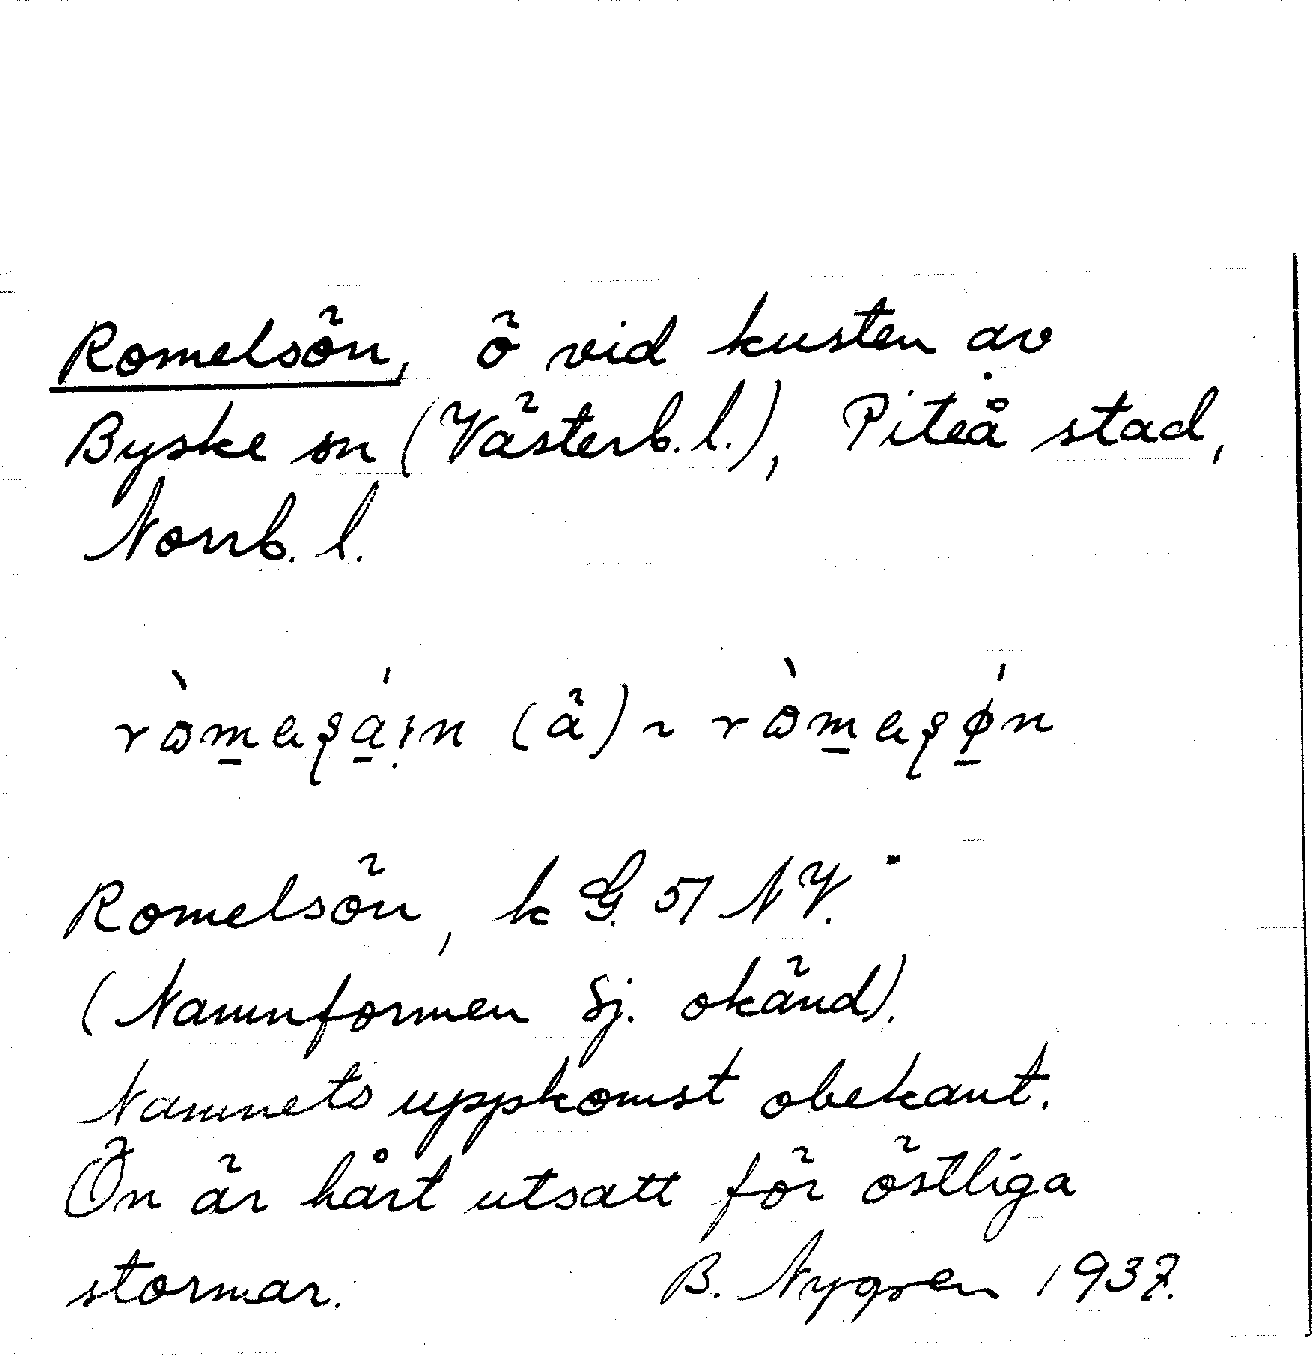 Romelsön, ö vid kusten av
Byske sn (Västerb. l.), Piteå stad,
Norrb. l.
Romelsön, k G. 51 NV.
(Namnformen Sj. okänd).
Namnets uppkomst obekant.
Ön är hårt utsatt för östliga
stormar. B. Nygren 1937.